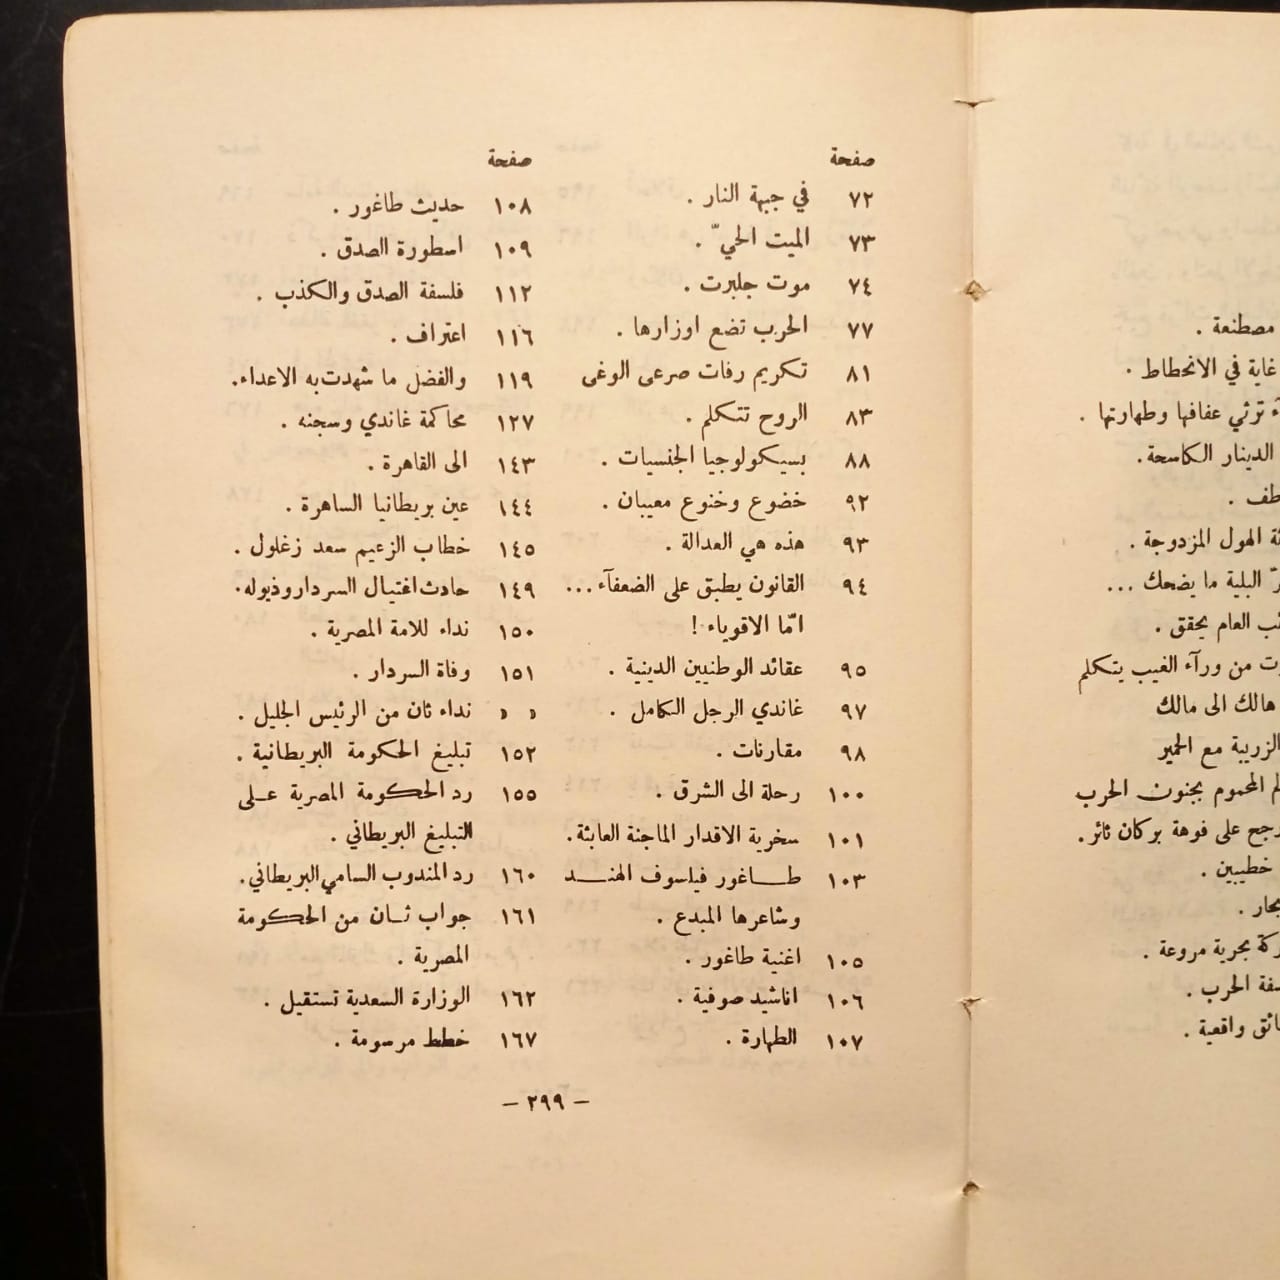 صفحة
٧٢ في جبهة النار .
٧٣ الميت الحيّ .
٧٤ موت جلبرت .
٧٧ الحرب تضع اوزارها .
٨١ تكريم رفات صرعى الوغى
٨٣ الروح تتكلم .
٨٨ بسيكولوجيا الجنسيات .
٩٢ خضوع وخنوع معيبان .
٩٣ هذه هي العدالة .
٩٤ القانون يطبق على الضعفآء ...
امّا الاقوياء !
٩٥ عقائد الوطنيين الدينية .
٩٧ غاندي الرجل الكامل .
٩٨ مقارنات .
١٠٠ رحلة الى الشرق .
١٠١ سخرية الاقدار الماجنة العابثة .
١٠٣ طاغور فيلسوف الهند
وشاعرها المبدع .
١٠٥ اغنية طاغور .
١٠٦ اناشيد صوفية .
١٠٧ الطهارة .
صفحة
١٠٨ حديث طاغور .
١٠٩ اسطورة الصدق .
١١٢ فلسفة الصدق والكذب .
١١٦ اعتراف .
١١٩ والفضل ما شهدت به الاعداء .
١٢٧ محاكمة غاندي وسجنه .
١٤٣ الى القاهرة .
١٤٤ عين بريطانيا الساهرة .
١٤٥ خطاب الزعيم سعد زغلول .
١٤٩ حادث اغتيال السردار وذيوله .
١٥٠ نداء للامة المصرية .
١٥١ وفاة السردار .
» » نداء ثان من الرئيس الجليل .
١٥٢ تبليغ الحكومة البريطانية .
١٥٥ رد الحكومة المصرية على
التبليغ البريطاني .
١٦٠ رد المندوب السامي البريطاني .
١٦١ جواب ثان من الحكومة
المصرية .
١٦٢ الوزارة السعدية تستقيل .
١٦٧ خطط مرسومة .
— ٢٩٩ —
مصطنعة .
غاية في الانحطاط .
ترثي عفافها وطهارتها .
الدينار الكاسحة .
الهول المزدوجة .
البلية ما يضحك ...
العام يحقق .
من ورآء الغيب يتكلم
هالك الى مالك
الزريبة مع الحمير
المحموم بجنون الحرب
على فوهة بركان ثائر .
خطيبين .
بحرية مروعة .
الحرب .
واقعية .